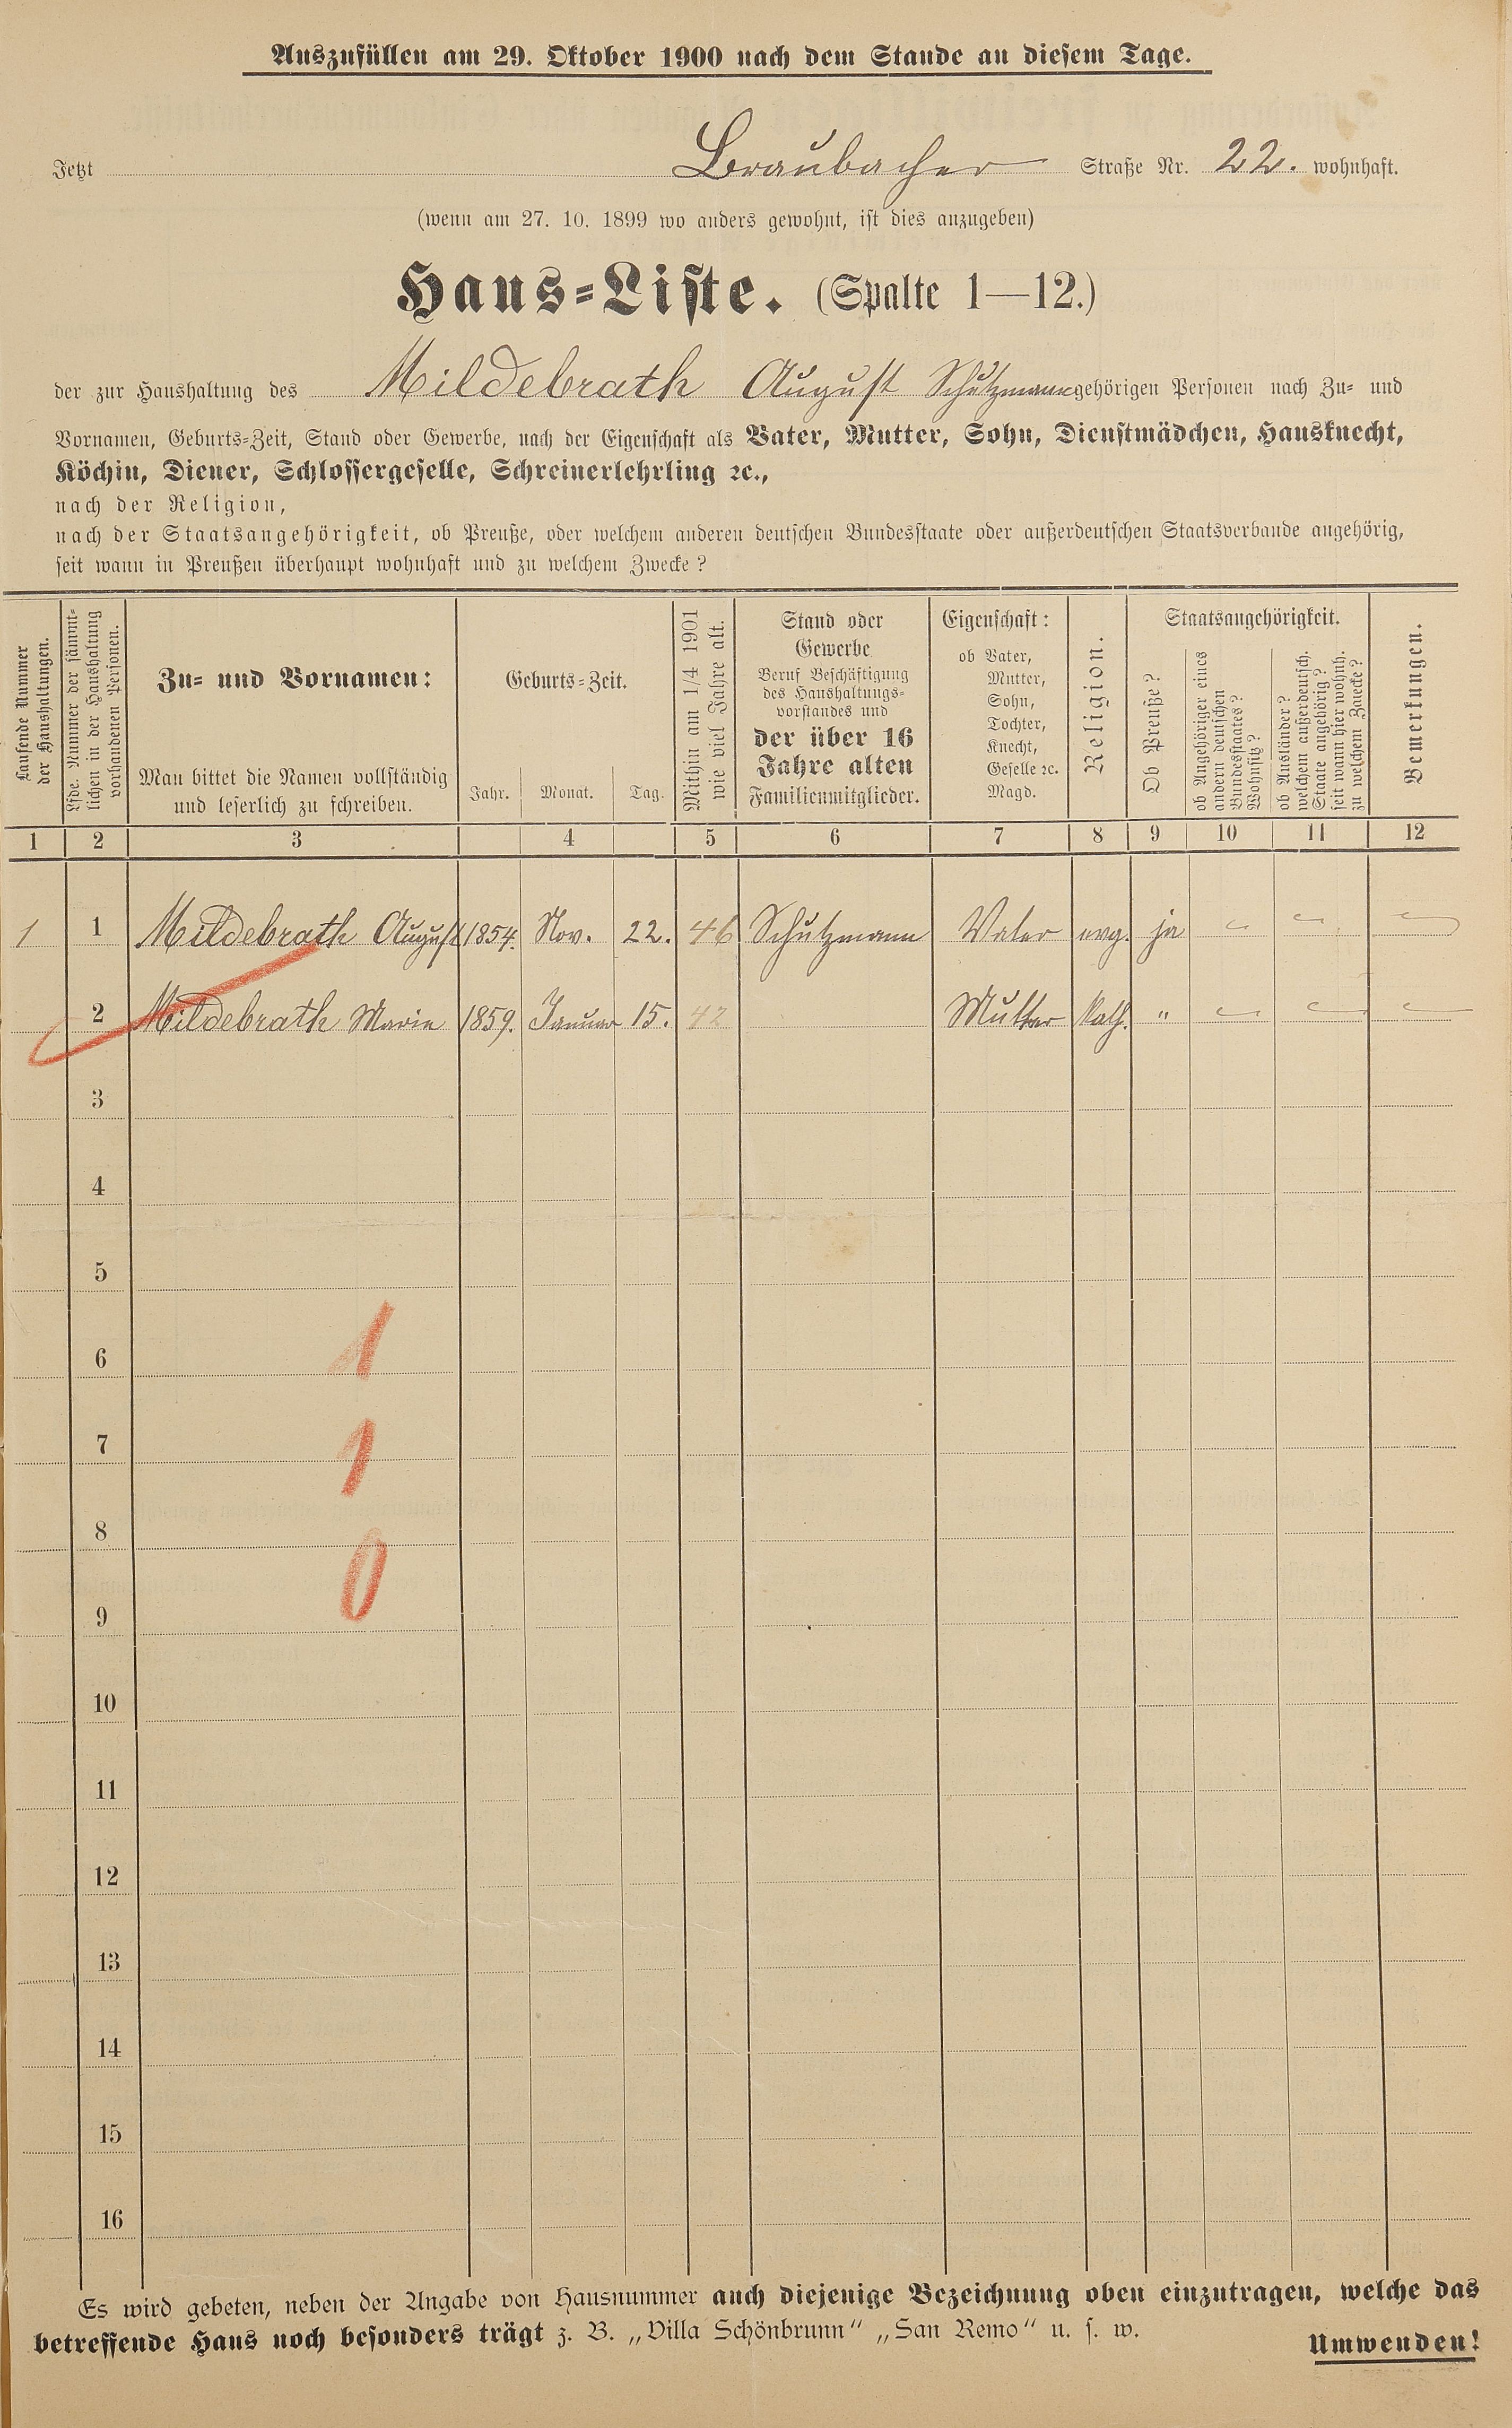 Auszufüllen am 29. Oktober 1900 nach dem Stande an diesem Tage.
Jetzt Braubacher Straße Nr. 22. wohnhaft.
(wenn am 27. 10. 1899 wo anders gewohnt, ist dies anzugeben)
Haus-Liste. (Spalte 1—12.)
der zur Haushaltung des Mildebrath August Schutzmann gehörigen Personen nach Zu- und
Vornamen, Geburts-Zeit, Stand oder Gewerbe, nach der Eigenschaft als Vater, Mutter, Sohn, Dienstmädchen, Hausknecht,
Köchin, Diener, Schlossergeselle, Schreinerlehrling ꝛc.,
nach der Religion,
nach der Staatsangehörigkeit, ob Preuße, oder welchem anderen deutschen Bundesstaate oder außerdeutschen Staatsverbande angehörig,
seit wann in Preußen überhaupt wohnhaft und zu welchem Zwecke?
Laufende Nummer
der Haushaltungen.
Lfde. Nummer der sämmt-
lichen in der Haushaltung
vorhandenen Personen.
Zu- und Vornamen:
Man bittet die Namen vollständig
und leserlich zu schreiben.
Geburts-Zeit.
Jahr. Monat. Tag.
Mithin am 1/4 1901
wie viel Jahre alt.
Stand oder
Gewerbe
Beruf Beschäftigung
des Haushaltungs-
vorstandes und
der über 16
Jahre alten
Familienmitglieder.
Eigenschaft:
ob Vater,
Mutter,
Sohn,
Tochter,
Knecht,
Geselle ꝛc.
Magd.
Religion.
Staatsangehörigkeit.
Ob Preuße?
ob Angehöriger eines
andern deutschen
Bundesstaates?
Wohnsitz?
ob Ausländer?
welchem außerdeutsch.
Staate angehörig?
seit wann hier wohnh.
zu welchem Zwecke?
Bemerkungen.
1 2 3 4 5 6 7 8 9 10 11 12
1 1 Mildebrath August 1854. Nov. 22. 46 Schutzmann Vater evg. ja
2 Mildebrath Marie 1859. Januar 15. 42 Mutter Kath. "
3
4
5
6 1
7 1
8
9 0
10
11
12
13
14
15
16
Es wird gebeten, neben der Angabe von Hausnummer auch diejenige Bezeichnung oben einzutragen, welche das
betreffende Haus noch besonders trägt z. B. „Villa Schönbrunn“ „San Remo“ u. s. w.
Umwenden!